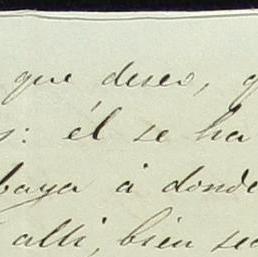 que deseo, q
s: él se ha
baya à donde
alli, bien se